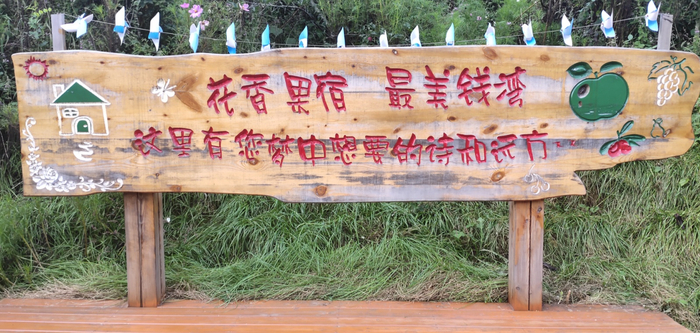 花香果宿 最美钱湾
这里有您梦中想要的诗和远方..